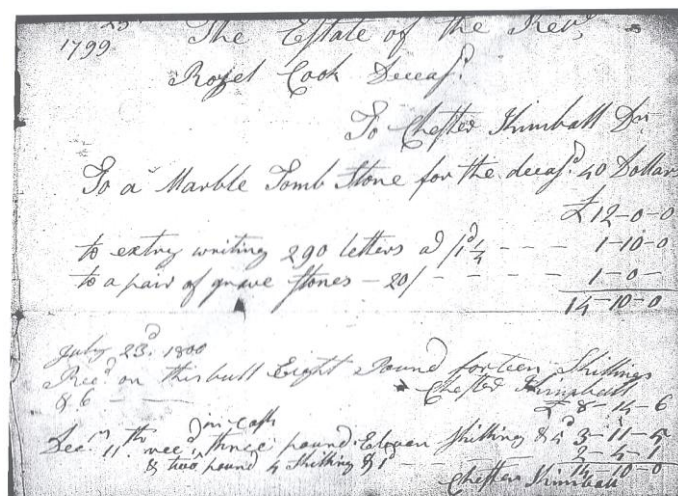 1799 The Estate of the Revd
Rozel Cook Deceasd
To Chester Kimball Dr
To a Marble Tomb Stone for the deceasd 40 Dollars
£12-0-0
to extry writing 290 letters ad /1d 1/4 - - - 1-10-0
to a pair of grave stones - 20/ - - - - 1-0-
14-10-0
July 23d 1800
Recd on this bill Eight Pound forteen Shillings
& 6 - Chester Kimball
£ 8-14-6
Decr 11th recd in cash three pound Eleven Shilling & 5d 3-11-5
& two pound 4 Shilling & 1d - - - 2-4-1
14-10-0
Chester Kimball